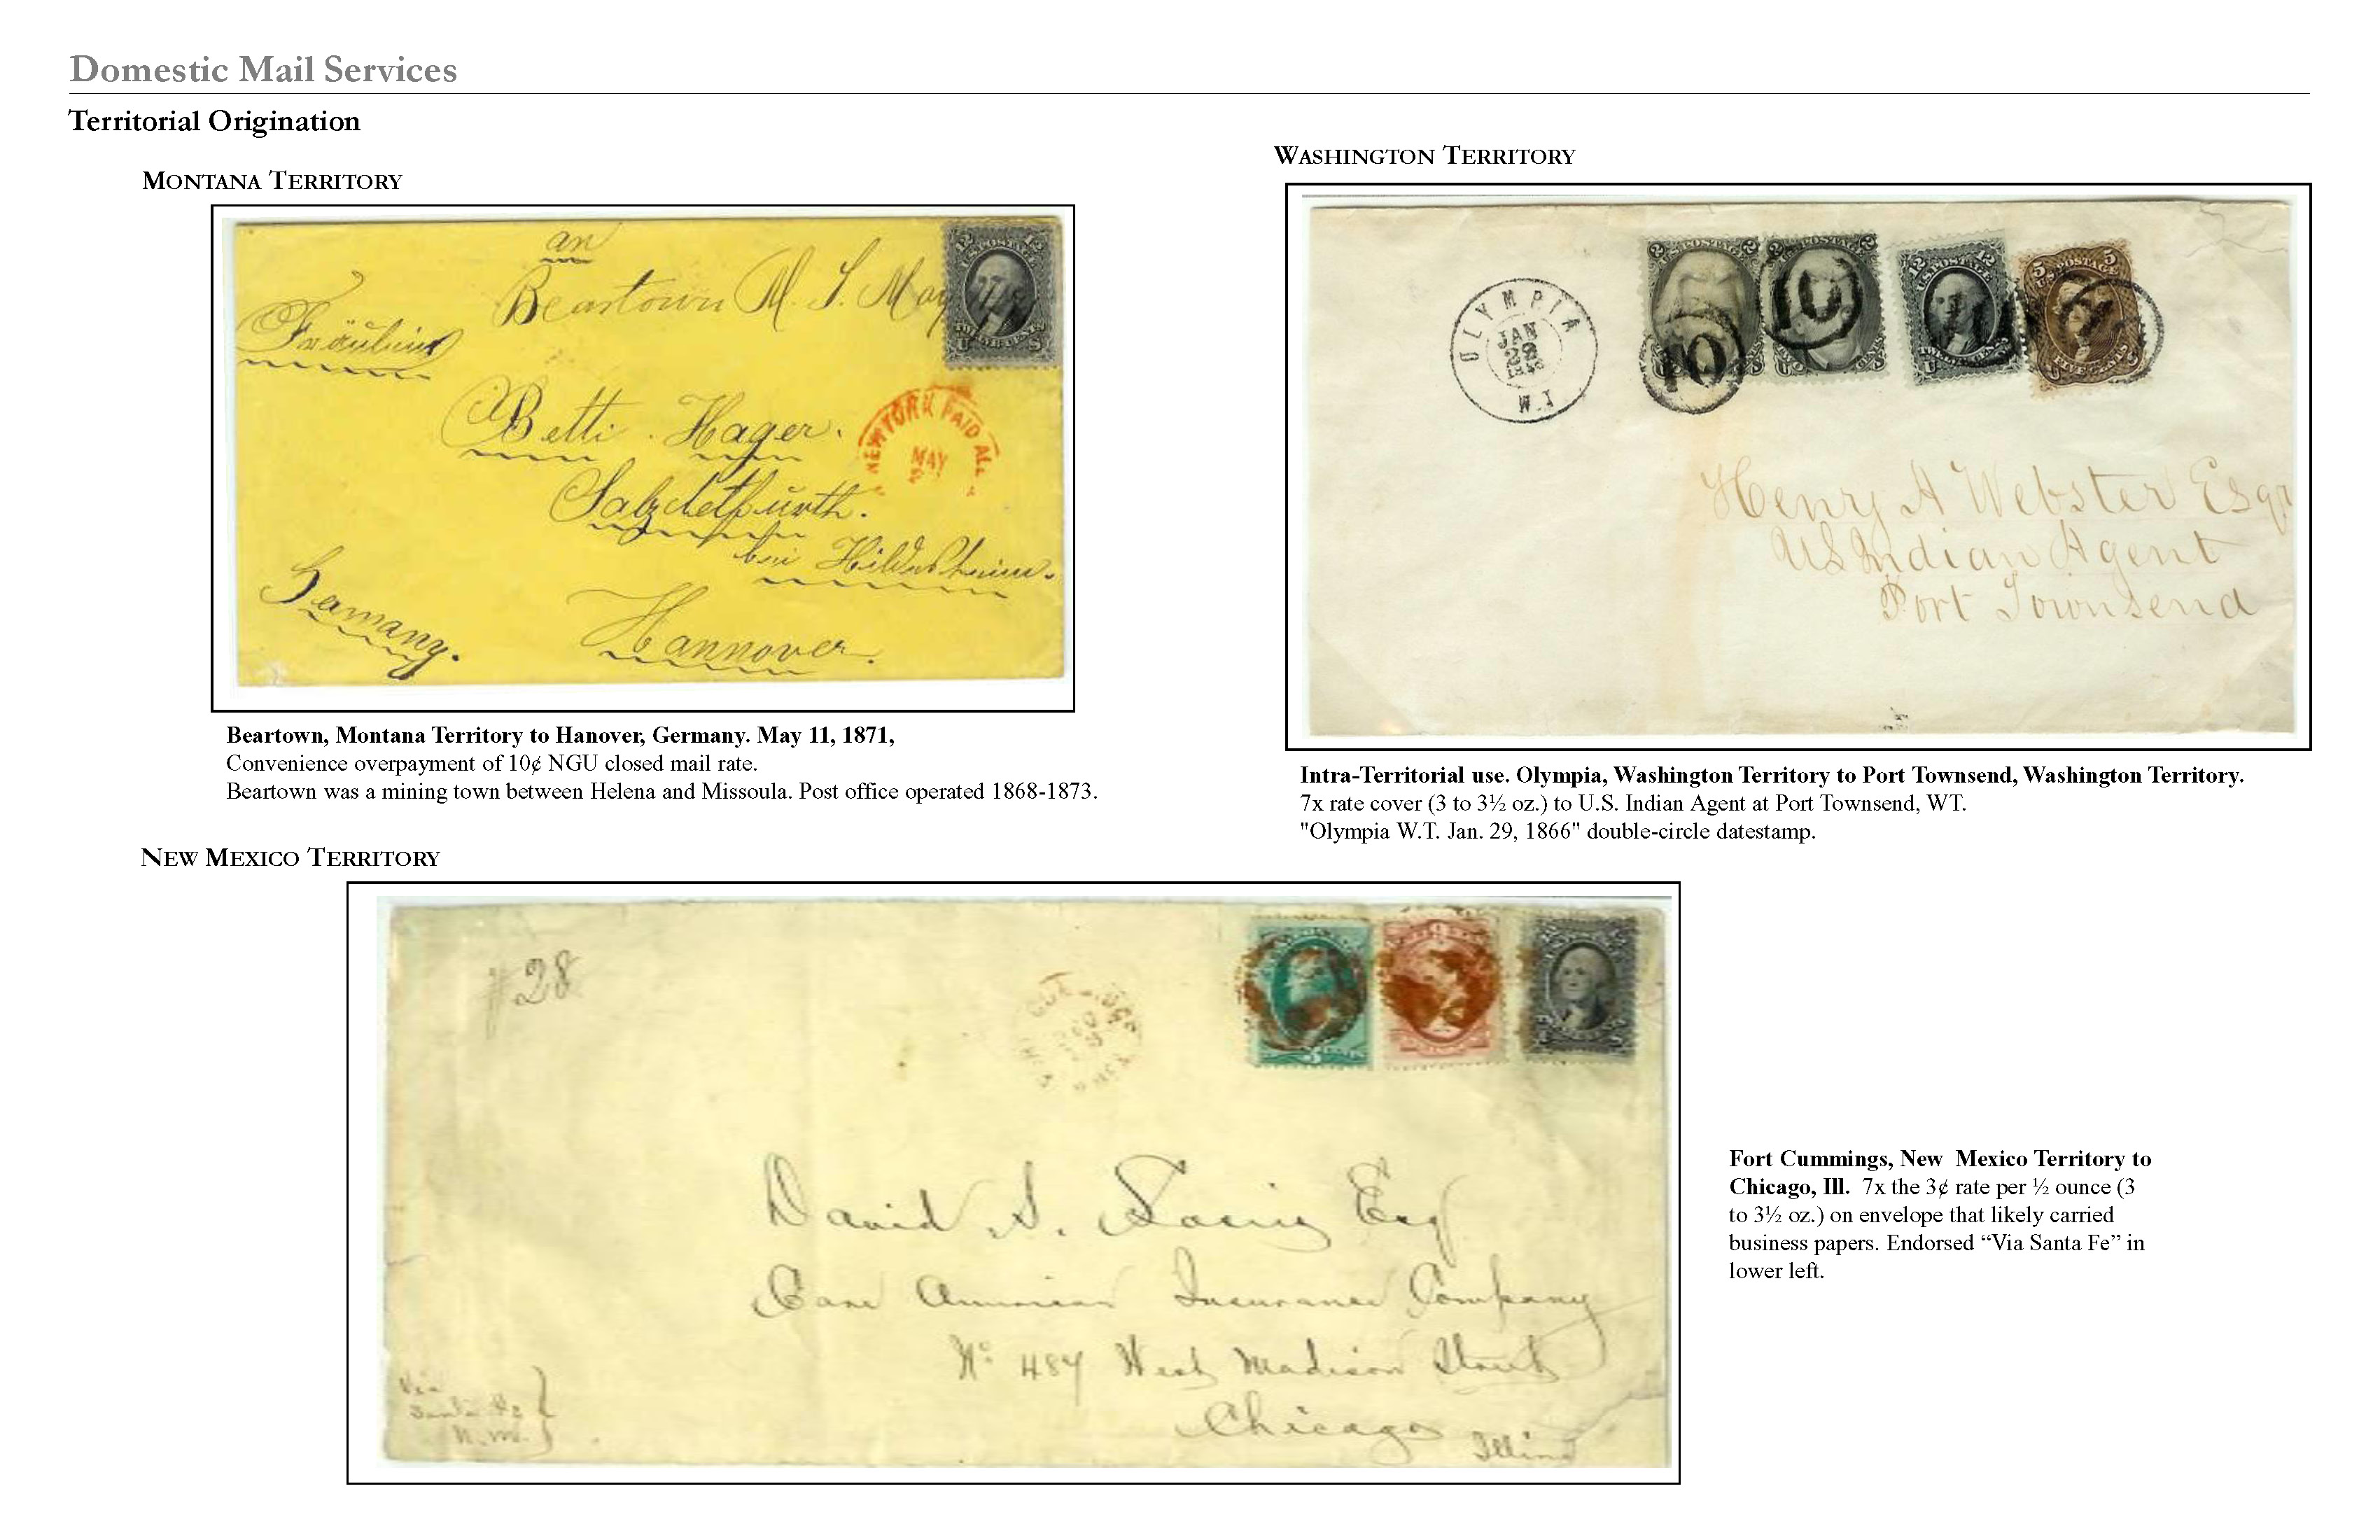 Domestic Mail Services
Territorial Origination
MONTANA TERRITORY
an
Beartown M. T. May
Fräulein
Betti Hager.
Salzdetfurth.
bei Hildesheim.
Germany.
Hannover.
12 12
U.S. POSTAGE
U S
NEW YORK PAID ALL
MAY
Beartown, Montana Territory to Hanover, Germany. May 11, 1871,
Convenience overpayment of 10¢ NGU closed mail rate.
Beartown was a mining town between Helena and Missoula. Post office operated 1868-1873.
WASHINGTON TERRITORY
OLYMPIA
JAN
W.T
2 U.S. POSTAGE 2
2 POSTAGE 2
12 U.S. POSTAGE 12
5 U.S. POSTAGE 5
10
10
Henry A Webster Esqr
US Indian Agent
Port Townsend
Intra-Territorial use. Olympia, Washington Territory to Port Townsend, Washington Territory.
7x rate cover (3 to 3½ oz.) to U.S. Indian Agent at Port Townsend, WT.
"Olympia W.T. Jan. 29, 1866" double-circle datestamp.
NEW MEXICO TERRITORY
#28
David S.
American Insurance Company
No 487 West Madison Street
Chicago
Via
Santa Fe
N.M.
Fort Cummings, New Mexico Territory to
Chicago, Ill. 7x the 3¢ rate per ½ ounce (3
to 3½ oz.) on envelope that likely carried
business papers. Endorsed “Via Santa Fe” in
lower left.